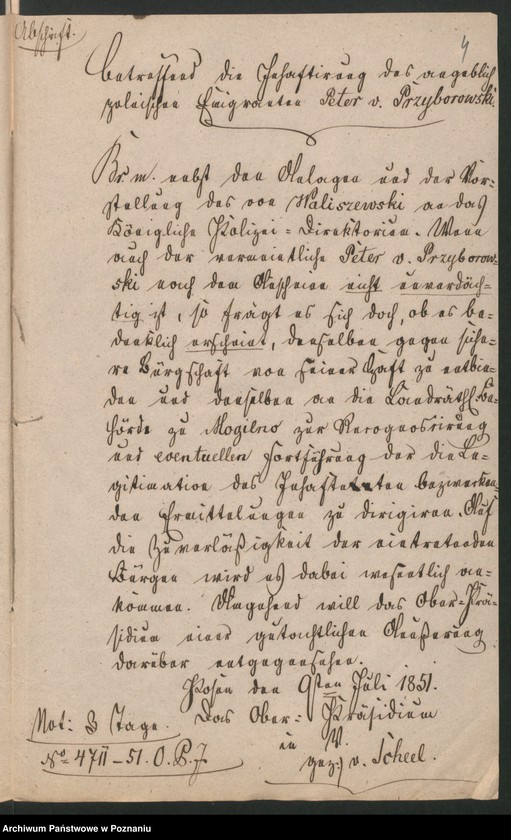 Abschrift.
4
betreffend die Inhaftirung des angeblich
polnischen Emigranten Peter v. Przyborowski.
Br. m. nebst den Anlagen und der Vor-
stellung des von Waliszewski an das
Königliche Polizei-Direktorium. Wenn
auch der vermeintliche Peter v. Przyborow-
ski nach dem Anscheine nicht unverdäch-
tig ist, so frägt es sich doch, ob es be-
denklich erscheint, denselben gegen siche-
re Bürgschaft von seiner Haft zu entbin-
den und denselben an die Landräthl. Be-
hörde zu Mogilno zur Recognoscirung
und eventuellen Fortführung der die Le-
gitimation des Inhaftirten bezwecken-
den Ermittelungen zu dirigiren. Auf
die Zuverläßigkeit der eintretenden
Bürgen wird es dabei wesentlich an-
kommen. Umgehend will das Ober-Prä-
sidium einer gutachtlichen Aeußerung
darüber entgegensehen.
Posen den 9ten Juli 1851.
Das Ober-Präsidium
Not: 3 Tage.
in V.
No 4711-51. O. P. J.
gez:) v. Scheel.
Archiwum Państwowe w Poznaniu